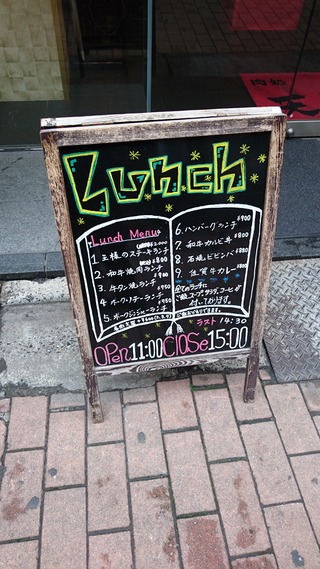 Lunch
Lunch Menu
1 王様のステーキランチ
2. 和牛焼肉ランチ
3. 牛タン焼ランチ
4. ポークソテーランチ
5. ポークジンジャーランチ
6. ハンバーグランチ ¥900
7. 和牛カルビ丼 ¥800
8. 石焼ビビンバ ¥880
9. 佐賀牛カレー
全てのランチに
ご飯.スープ.サラダ.コーヒーが
付いております。
ラスト 14:30
OPen 11:00 Close 15:00